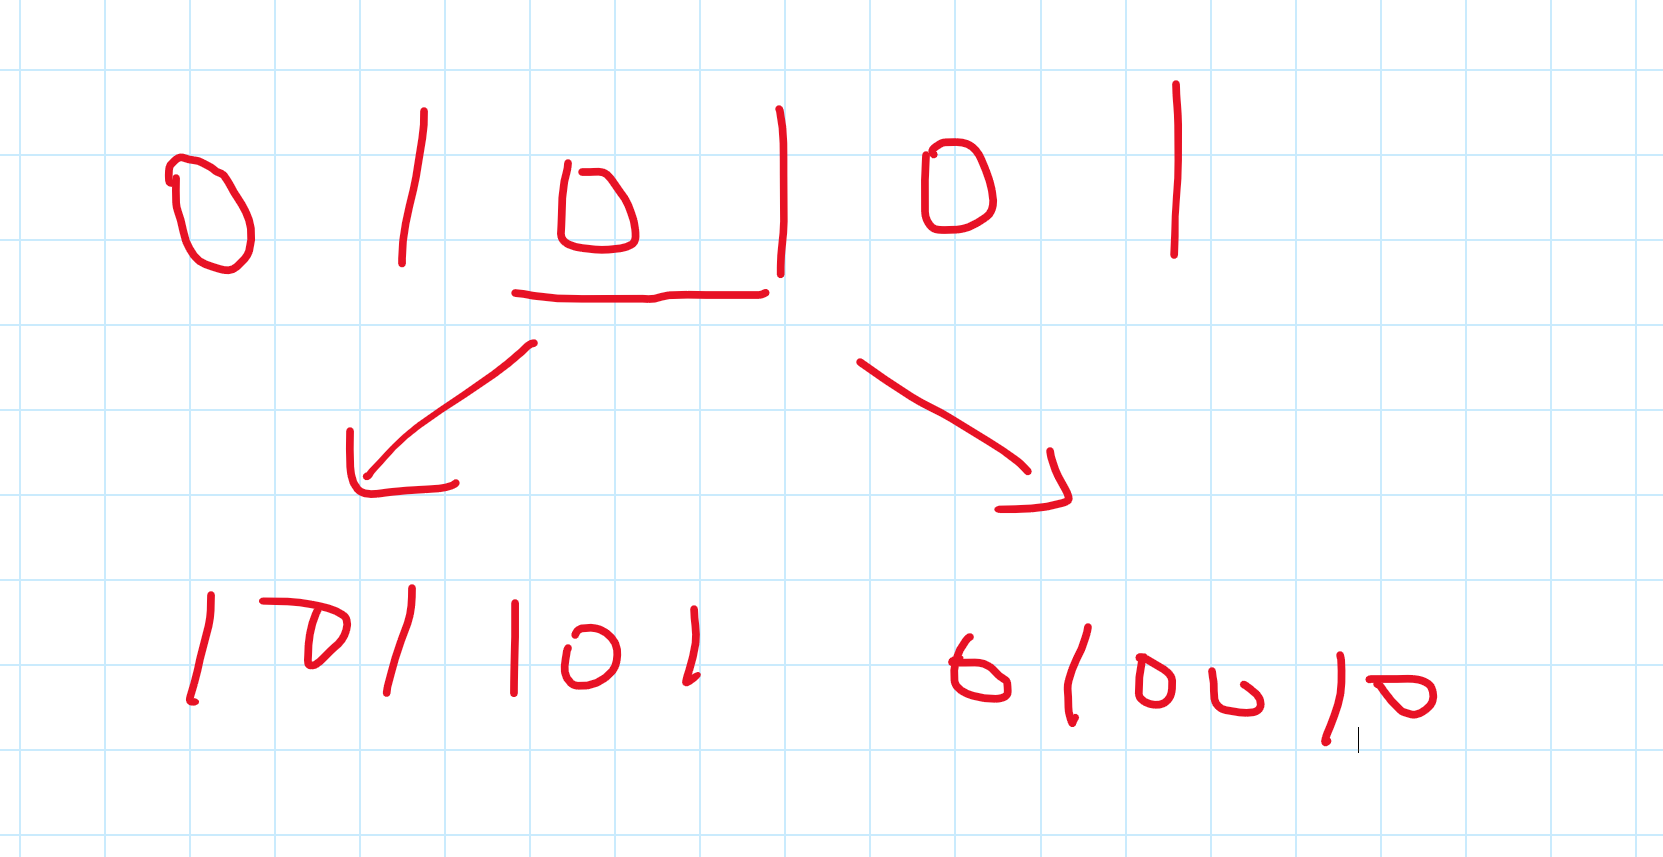 0 1 0 1 0 1
1 0 1 1 0 1 0 1 0 0 1 0